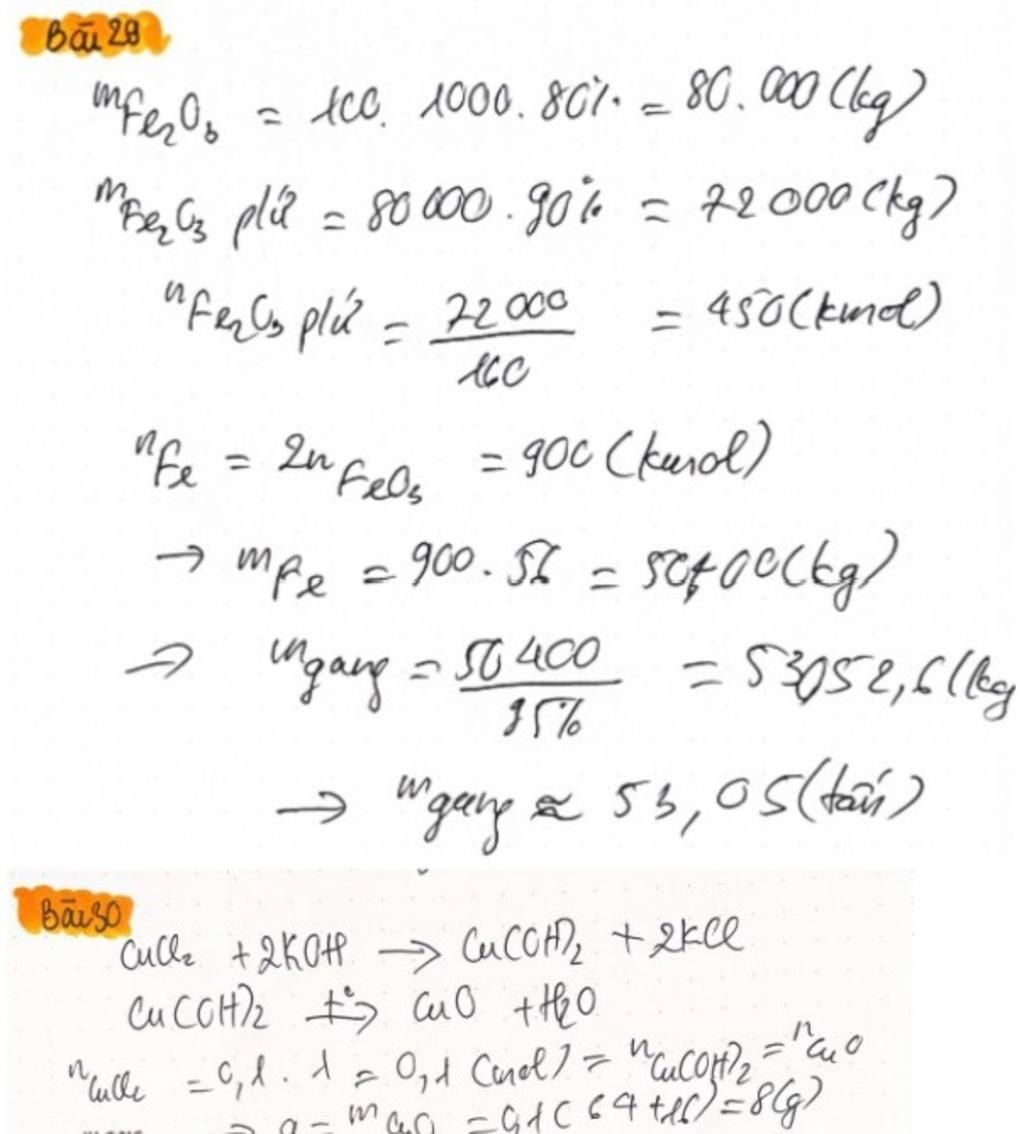 Bài 29
mFe₂O₃ = 100. 1000. 80% = 80.000 (kg)
mFe₂O₃ p/ứ = 80000 . 90% = 72000 (kg)
nFe₂O₃ p/ứ = 72000/160 = 450 (kmol)
nFe = 2nFeO₃ = 900 (kmol)
→ mFe = 900. 56 = 50400 (kg)
→ mgang = 50400/95% = 53052,6 (kg
→ mgang ≈ 53,05 (tấn)
Bài 30
CuCl₂ + 2KOH → Cu(OH)₂ + 2KCl
Cu(OH)₂ t°→ CuO + H₂O
nCuCl₂ = 0,1. 1 = 0,1 (mol) = nCu(OH)₂ = nCuO
→ a = mCuO = 0,1(64+16) = 8(g)